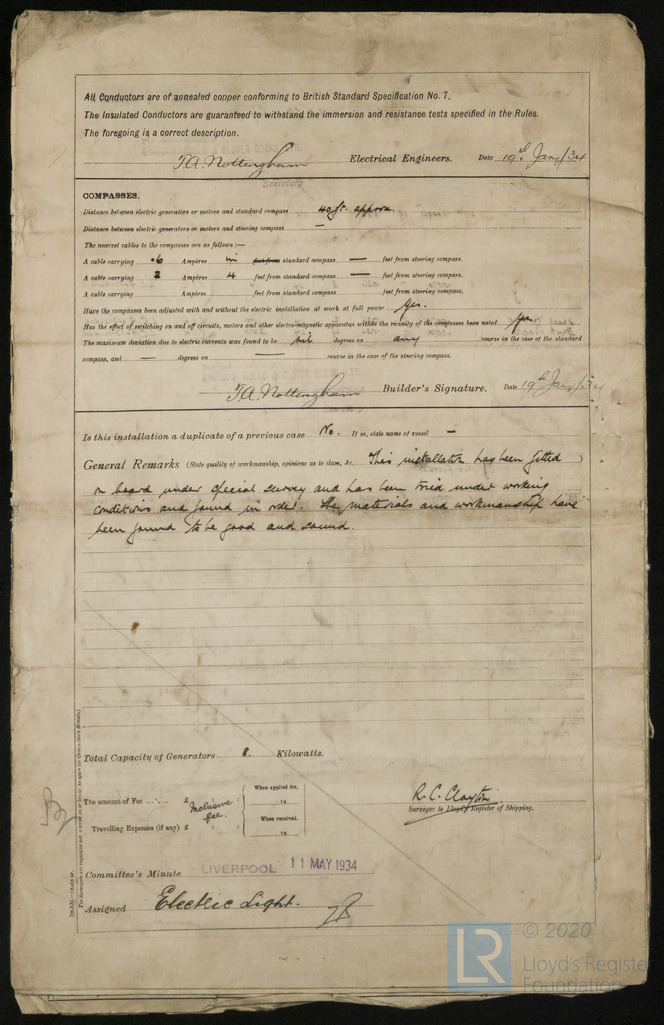 All Conductors are of annealed copper conforming to British Standard Specification No. 7.
The Insulated Conductors are guaranteed to withstand the immersion and resistance tests specified in the Rules.
The foregoing is a correct description.
T.A. Nottingham Electrical Engineers. Date 19th Jany/34
Secretary
COMPASSES.
Distance between electric generators or motors and standard compass 40 ft. approx.
Distance between electric generators or motors and steering compass —
The nearest cables to the compasses are as follows:—
A cable carrying .6 Ampères in feet from standard compass — feet from steering compass.
A cable carrying 2 Ampères 4 feet from standard compass — feet from steering compass.
A cable carrying Ampères feet from standard compass feet from steering compass.
Have the compasses been adjusted with and without the electric installation at work at full power Yes.
Has the effect of switching on and off circuits, motors and other electro-magnetic apparatus within the vicinity of the compasses been noted Yes
The maximum deviation due to electric currents was found to be nil degrees on any course in the case of the standard
compass, and — degrees on — course in the case of the steering compass.
T.A. Nottingham Builder's Signature. Date 19th Jany/34
Secretary
Is this installation a duplicate of a previous case No. If so, state name of vessel —
General Remarks (State quality of workmanship, opinions as to class, &c. This installation has been fitted
on board under special survey and has been tried under working
conditions and found in order. The materials and workmanship have
been found to be good and sound.
Total Capacity of Generators 8. Kilowatts.
The amount of Fee £ Inclusive fee.
When applied for,
19
Travelling Expenses (if any) £
When received,
19
R. C. Clayton
Surveyor to Lloyd's Register of Shipping.
Committee's Minute LIVERPOOL 11 MAY 1934
Assigned Electric Light.
LR © 2020
Lloyd's Register
Foundation